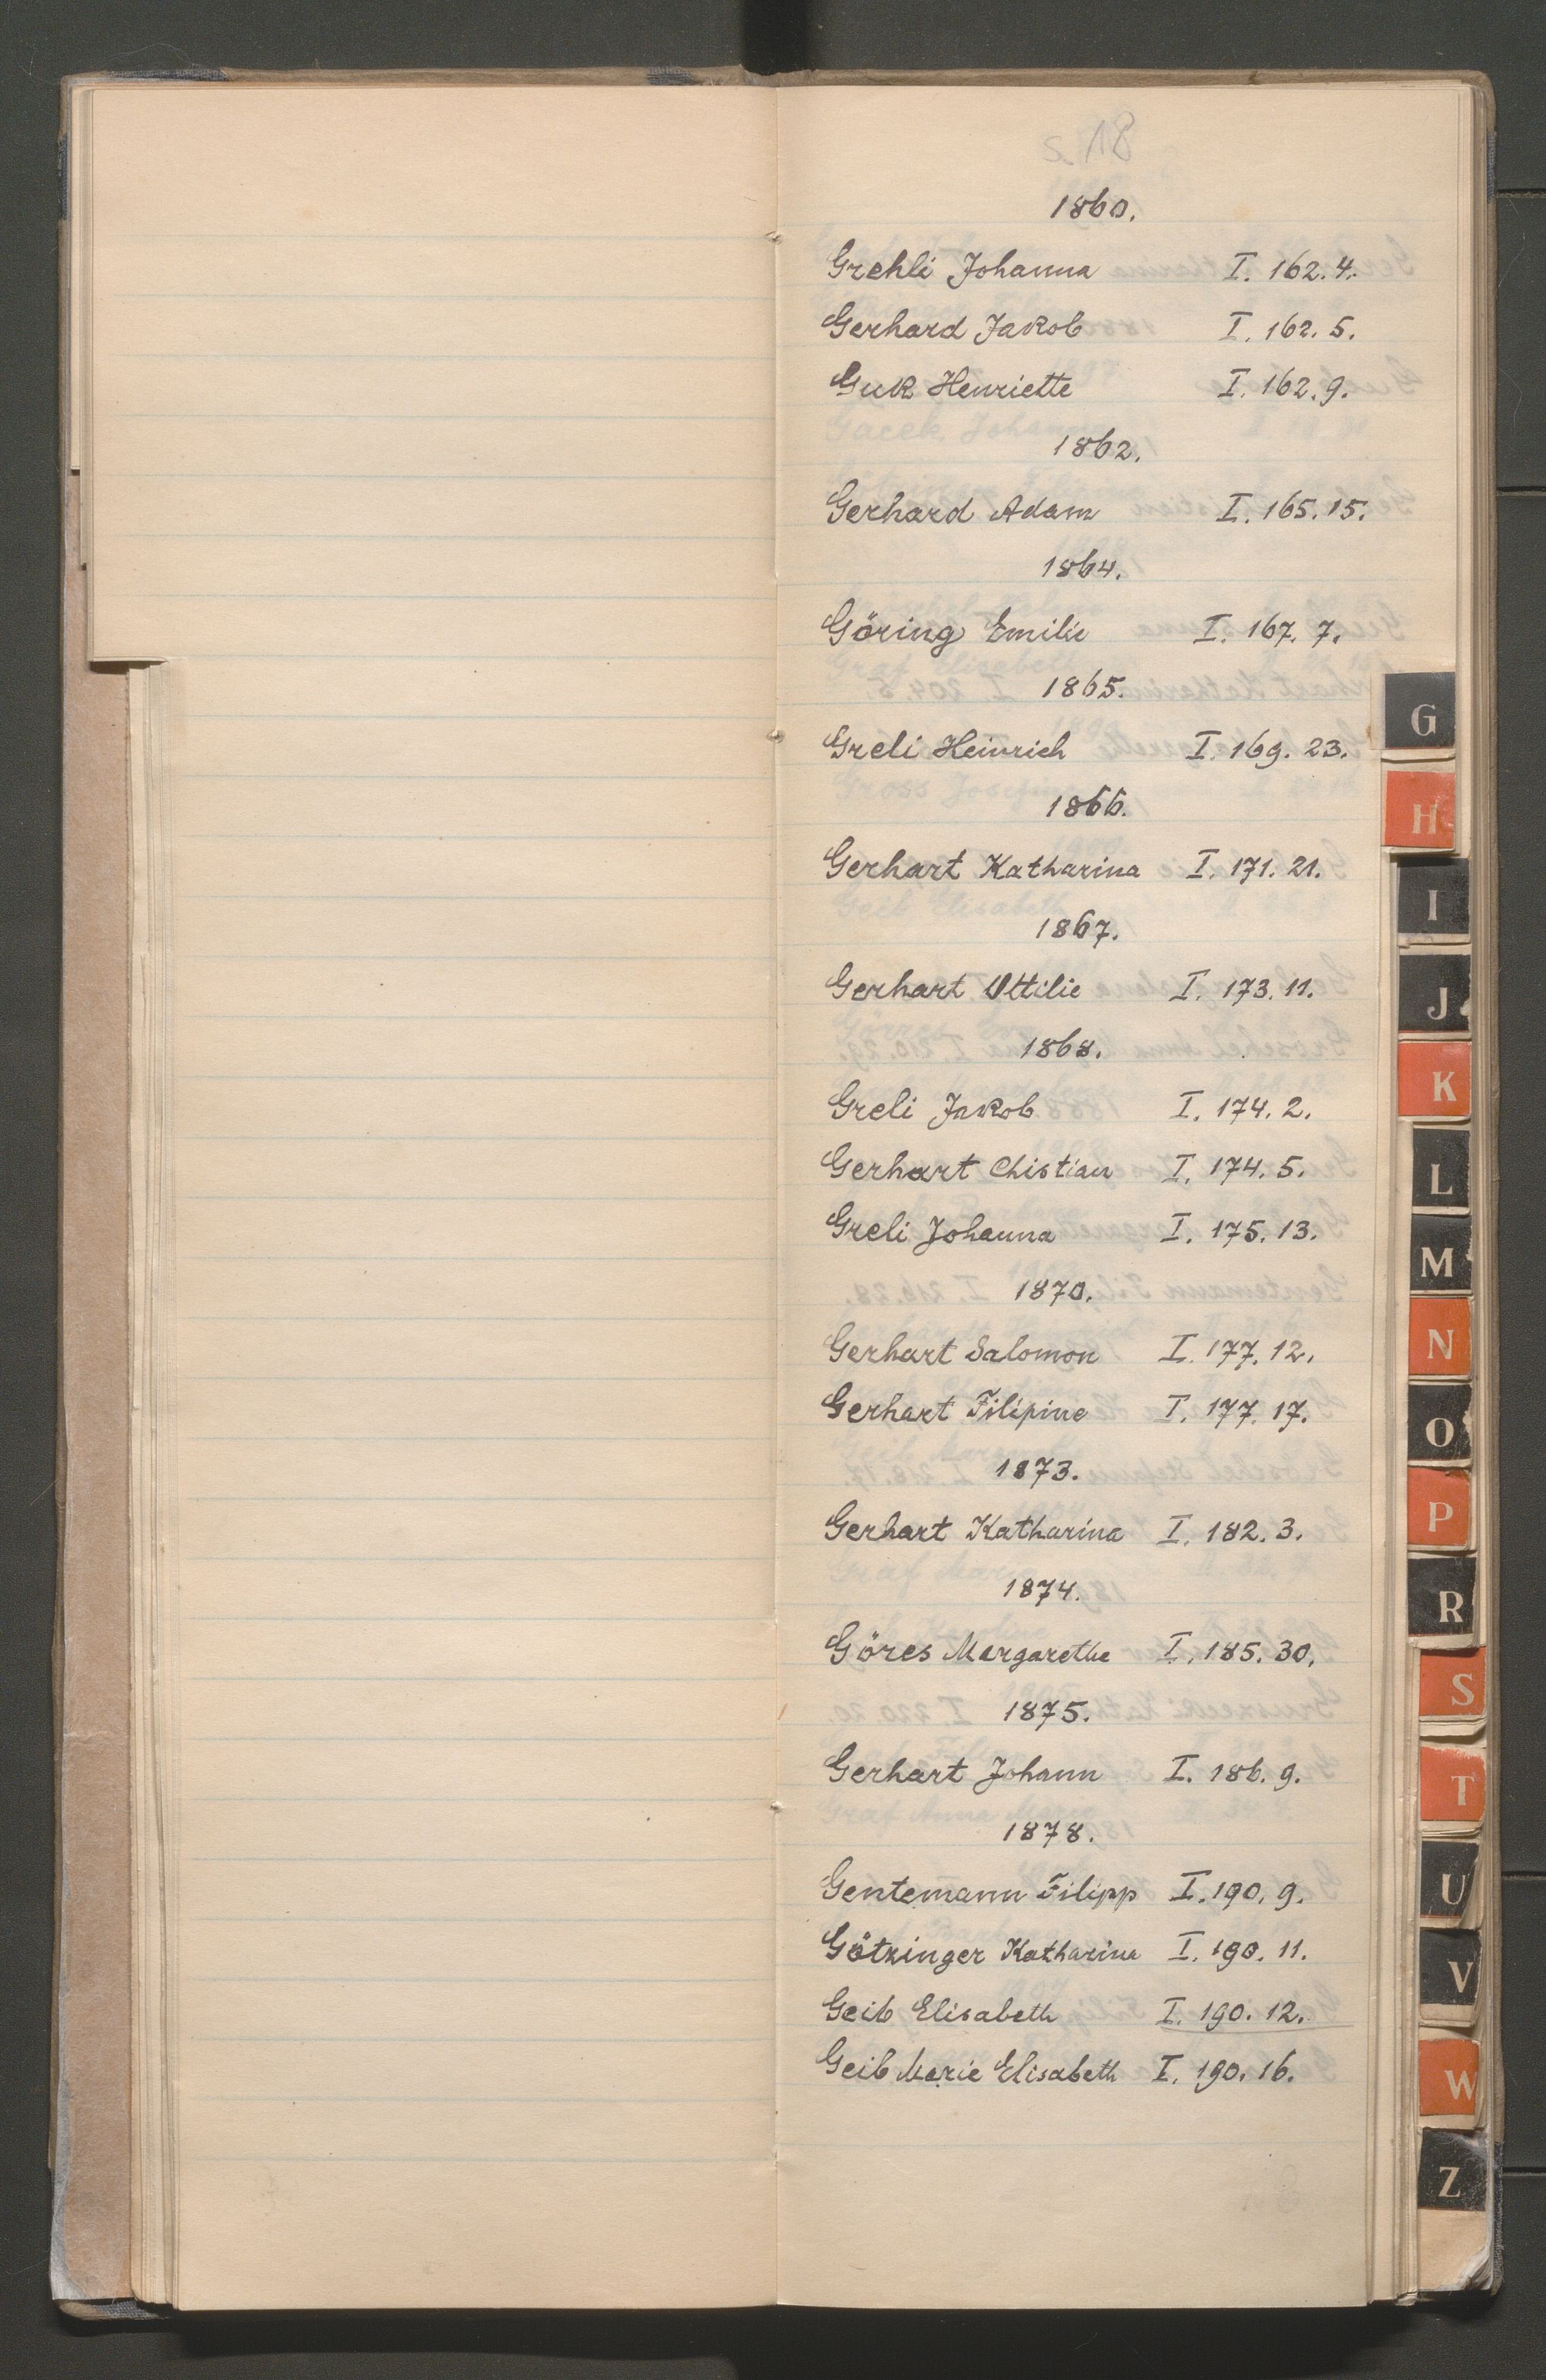 s. 18
1860.
Grehli Johanna I. 162. 4.
Gerhard Jakob I. 162. 5.
Guk Henriette I. 162. 9.
1862.
Gerhard Adam I. 165. 15.
1864.
Göring Emilie I. 167. 7.
1865.
Greli Heinrich I. 169. 23.
1866.
Gerhart Katharina I. 171. 21.
1867.
Gerhart Ottilie I. 173. 11.
1868.
Greli Jakob I. 174. 2.
Gerhart Chistian I. 174. 5.
Greli Johanna I. 175. 13.
1870.
Gerhart Salomon I. 177. 12.
Gerhart Filipine I. 177. 17.
1873.
Gerhart Katharina I. 182. 3.
1874.
Göres Margarethe I. 185. 30.
1875.
Gerhart Johann I. 186. 9.
1878.
Gentemann Filipp I. 190. 9.
Götzinger Katharina I. 190. 11.
Geib Elisabeth I. 190. 12.
Geib Marie Elisabeth I. 190. 16.
G
H
I
J
K
L
M
N
O
P
R
S
T
U
V
W
Z